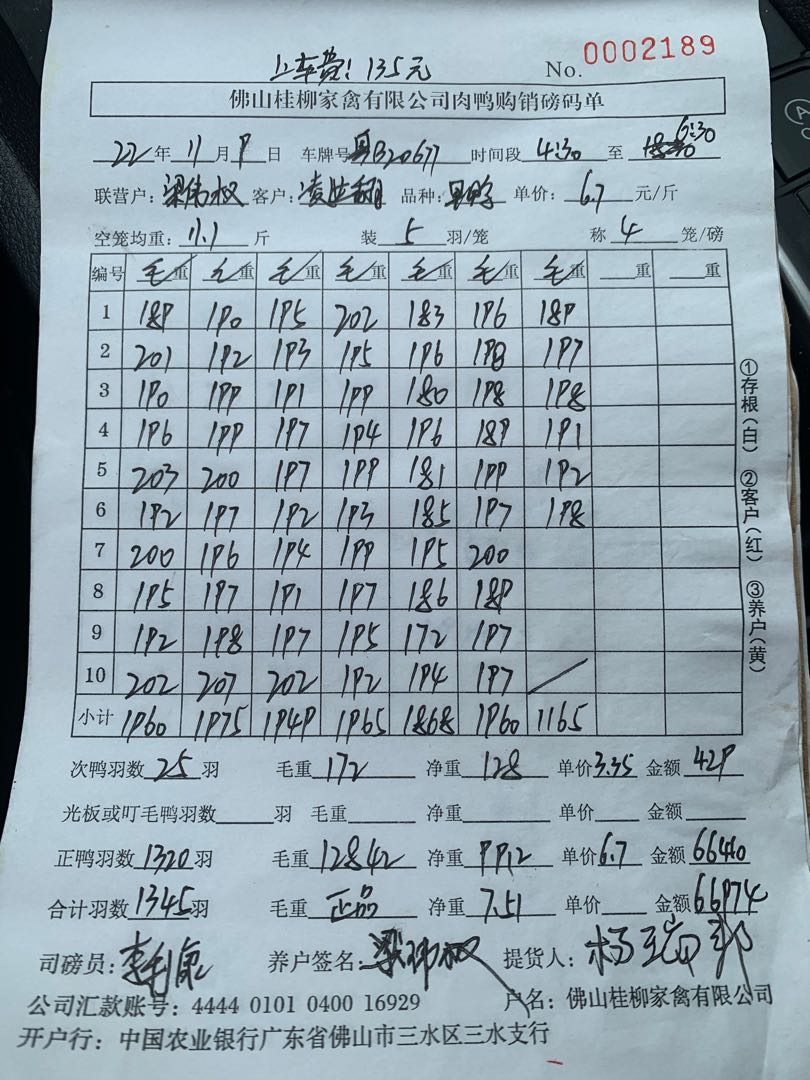 上车费：135元
No. 0002189
佛山桂柳家禽有限公司肉鸭购销磅码单
22年11月9日 车牌号粤B20677 时间段4:30至6:30
联营户：梁伟权 客户： 品种： 单价：6.7元/斤
空笼均重：11.1斤 装5羽/笼 称4笼/磅
编号 毛重 毛重 毛重 毛重 毛重 毛重 毛重 重 重
1 189 190 195 202 183 196 189
2 201 192 193 195 196 198 197
3 190 199 191 199 180 198 198
4 196 199 197 194 196 189 191
5 203 200 197 199 181 199 192
6 192 197 192 193 185 197 198
7 200 196 194 199 195 200
8 195 197 191 197 186 189
9 192 198 197 195 172 197
10 202 207 202 192 194 197 /
小计 1960 1975 1949 1965 1868 1960 1165
①存根(白) ②客户(红) ③养户(黄)
次鸭羽数25羽 毛重172 净重128 单价3.35 金额429
光板或叮毛鸭羽数 羽 毛重 净重 单价 金额
正鸭羽数1320羽 毛重12842 净重9912 单价6.7 金额66410
合计羽数1345羽 毛重正品 净重7.51 单价 金额66974
司磅员：李利康 养户签名：梁伟权 提货人：杨瑞郭
公司汇款账号：4444 0101 0400 16929 户名：佛山桂柳家禽有限公司
开户行：中国农业银行广东省佛山市三水区三水支行